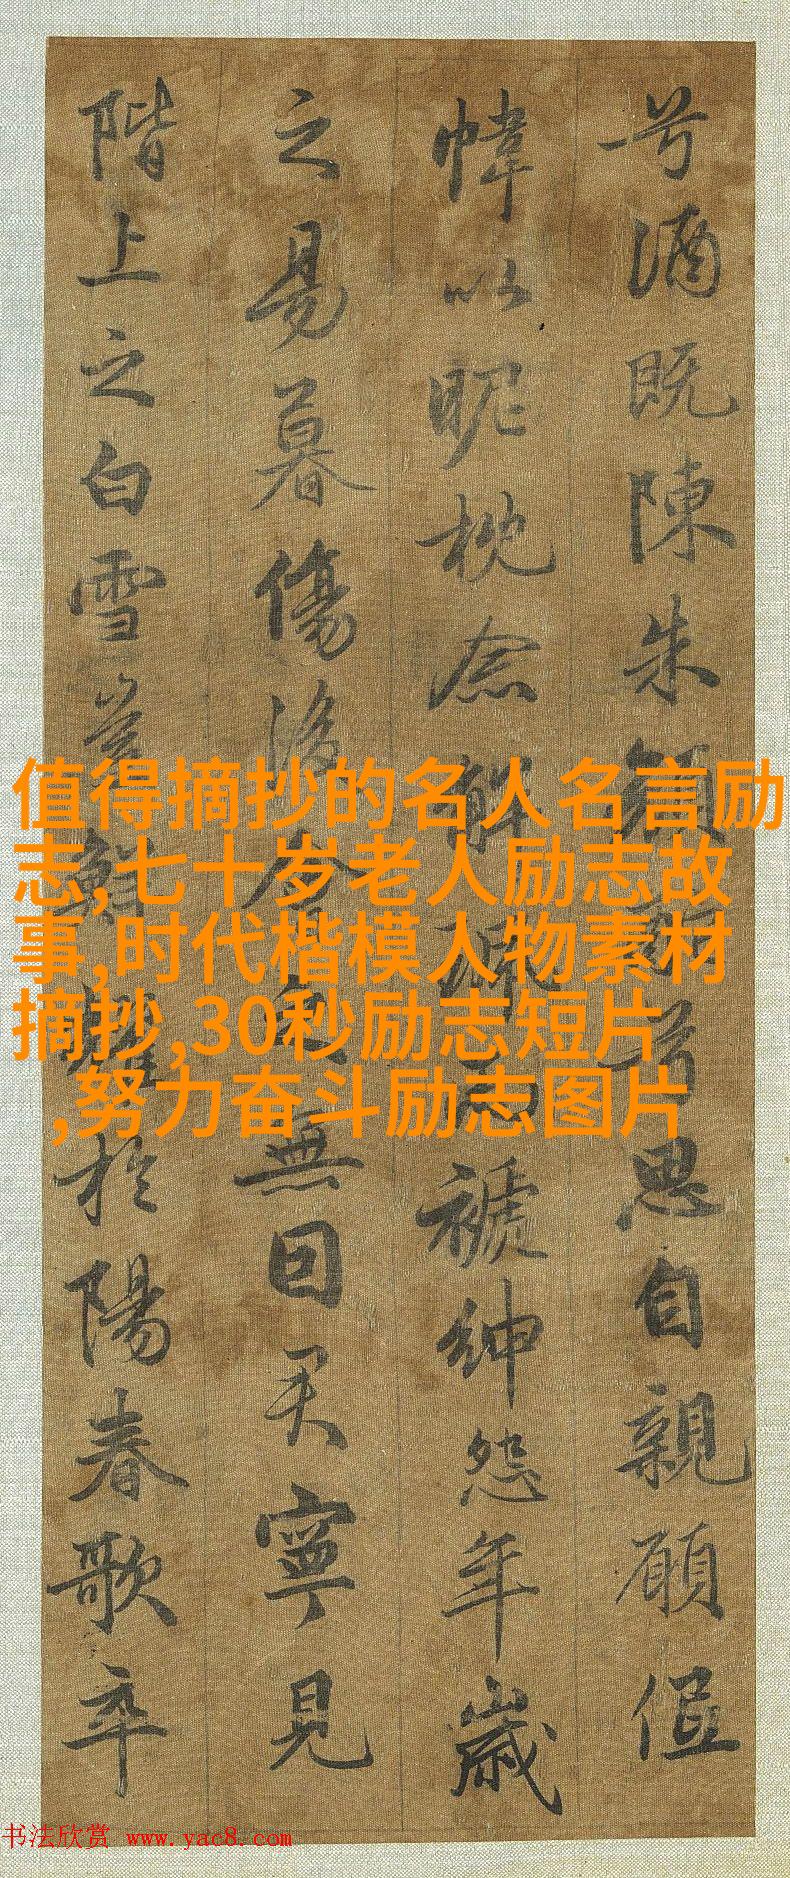 兮酒既陳朱顏酡兮思自親願低
幃以昵枕念解珮而褫紳怨年歲
之易暮傷後會之無因君寧見
階上之白雪豈鮮耀於陽春歌卒
值得摘抄的名人名言励
志,七十岁老人励志故
事,时代楷模人物素材
摘抄,30秒励志短片
,努力奋斗励志图片
书法欣赏 www.yac8.com